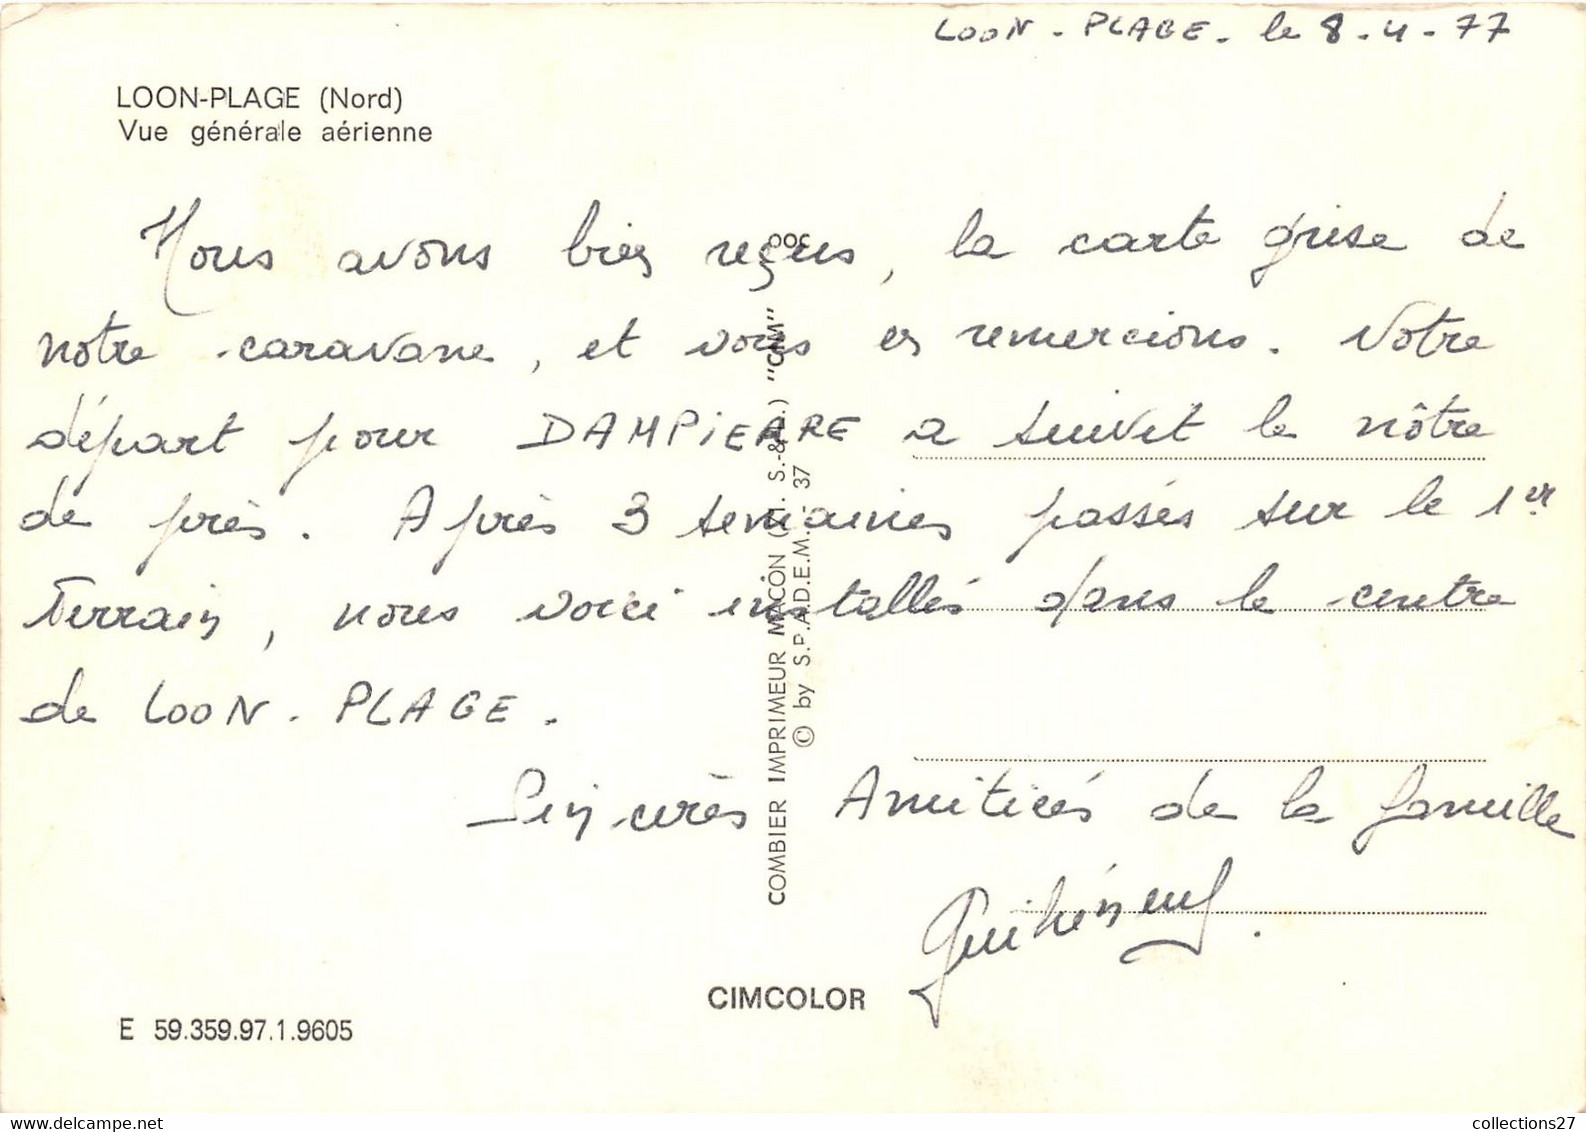 LOON-PLAGE. le 8-4-77
LOON-PLAGE (Nord)
Vue générale aérienne
Nous avons bien reçus, la carte grise de
notre caravane, et vous en remercions. Votre
départ pour DAMPiERRE a suivit le nôtre
de près. Après 3 semaines passés sur le 1er
terrain, nous voici installés dans le centre
de LOON-PLAGE.
Sincères Amitiés de la famille
Guihéneuf.
COMBIER IMPRIMEUR MACON (71. S.-&-L.) "CIM"
© by S.P.A.D.E.M. - 37
CIMCOLOR
E 59.359.97.1.9605
collections27